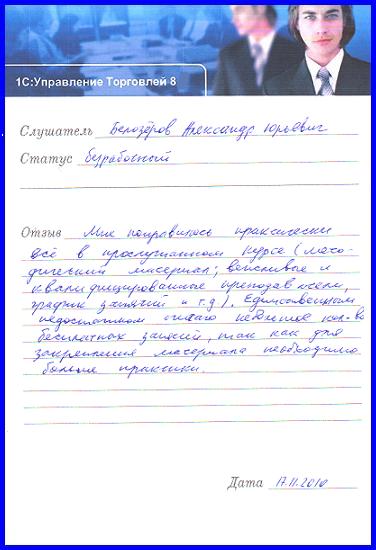 1С:Управление Торговлей 8
Слушатель Белозёров Александр Юрьевич
Статус безработный
Отзыв Мне понравилось практически
всё в прослушанном курсе (мето-
дический материал; вежливые и
квалифицированные преподаватели,
график занятий и т.д.). Единственным
недостатком считаю небольшое кол-во
бесплатных занятий, так как для
закрепления материала необходимо
больше практики.
Дата 17.11.2010